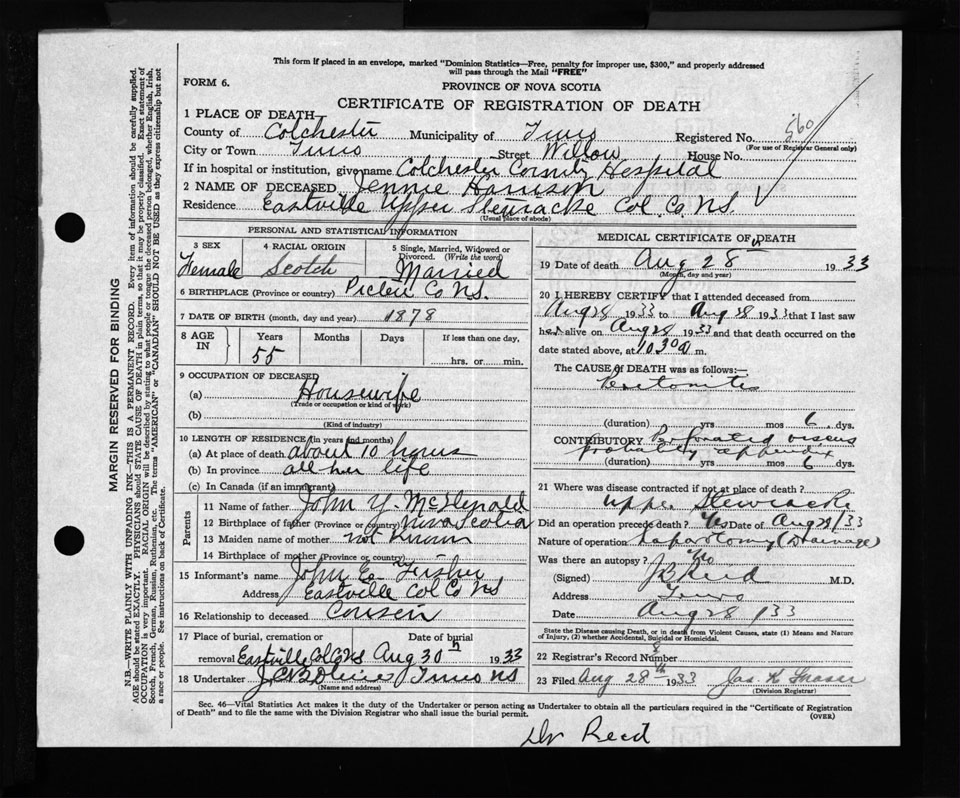 This form if placed in an envelope, marked "Dominion Statistics—Free, penalty for improper use, $300," and properly addressed
will pass through the Mail "FREE"
FORM 6.
PROVINCE OF NOVA SCOTIA
CERTIFICATE OF REGISTRATION OF DEATH
1 PLACE OF DEATH—
County of Colchester Municipality of Truro Registered No. 560
(For use of Registrar General only)
City or Town Truro Street Willow House No.
If in hospital or institution, give name Colchester County Hospital
2 NAME OF DECEASED Jennie Harrison
Residence Eastville Upper Stewiacke Col. Co NS.
(Usual place of abode)
PERSONAL AND STATISTICAL INFORMATION
3 SEX Female
4 RACIAL ORIGIN Scotch
5 Single, Married, Widowed or Divorced. (Write the word) Married
6 BIRTHPLACE (Province or country) Pictou Co NS.
7 DATE OF BIRTH (month, day and year) 1878
8 AGE IN Years 55 Months Days If less than one day, hrs. or min.
9 OCCUPATION OF DECEASED
(a) Housewife
(Trade or occupation or kind of work)
(b)
(Kind of industry)
10 LENGTH OF RESIDENCE (in years and months)
(a) At place of death about 10 hours
(b) In province all her life
(c) In Canada (if an immigrant)
Parents
11 Name of father John Y.
12 Birthplace of father (Province or country) Nova Scotia
13 Maiden name of mother not known
14 Birthplace of mother (Province or country)
15 Informant's name John E. Fisher
Address Eastville Col Co NS
16 Relationship to deceased Cousin
17 Place of burial, cremation or removal Eastville Col Co NS Date of burial Aug 30th 1933
18 Undertaker Truro NS
(Name and address)
MEDICAL CERTIFICATE OF DEATH
19 Date of death Aug 28th 1933
(Month, day and year)
20 I HEREBY CERTIFY that I attended deceased from
Aug 28 1933 to Aug 28 1933 that I last saw
her alive on Aug 28 1933 and that death occurred on the
date stated above, at 10.30 a m.
The CAUSE OF DEATH was as follows:—
Peritonitis
(duration) yrs mos 6. dys.
CONTRIBUTORY Perforated viscus
probably appendix
(duration) yrs mos 6 dys.
21 Where was disease contracted if not at place of death?
Upper Stewiacke
Did an operation precede death? Yes Date of Aug 28/33
Nature of operation Laparotomy (Drainage)
Was there an autopsy? No
(Signed) Reid M.D.
Address Truro
Date Aug 28/33
State the Disease causing Death, or in death from Violent Causes, state (1) Means and Nature
of Injury, (2) whether Accidental, Suicidal or Homicidal.
22 Registrar's Record Number
23 Filed Aug 28th 1933 Jas. K Fraser
(Division Registrar)
Sec. 46—Vital Statistics Act makes it the duty of the Undertaker or person acting as Undertaker to obtain all the particulars required in the "Certificate of Registration
of Death" and to file the same with the Division Registrar who shall issue the burial permit. (OVER)
Dr Reed
MARGIN RESERVED FOR BINDING
N.B.—WRITE PLAINLY WITH UNFADING INK—THIS IS A PERMANENT RECORD. Every item of information should be carefully supplied.
AGE should be stated EXACTLY. PHYSICIANS should STATE CAUSE OF DEATH in plain terms, so that it may be properly classified. Exact statement of
OCCUPATION is very important. RACIAL ORIGIN will be described by stating to what people or tongue the deceased person belonged, whether English, Irish,
Scotch, French, German, Russian, Ruthenian, etc. The terms "AMERICAN" or "CANADIAN" SHOULD NOT BE USED as they express citizenship but not
a race or people. See instructions on back of Certificate.